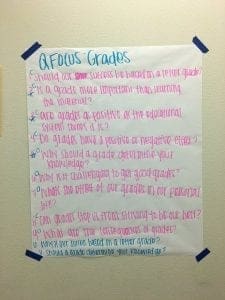 QFocus Grades
Should our success be based on a letter grade?
Is a grade more important than learning
the material?
are grades as positive as the educational
system thinks it is?
Do grades have a positive or negative effect?
Why should a grade determine your
knowledge?
Why is it challenging to get good grades?
Whats the effect of our grades in our personal
life?
Can grades stop us from striving to be our best?
What are the consequences of grades?
Why is our future based on a letter grade?
Should a grade determine your knowledge?